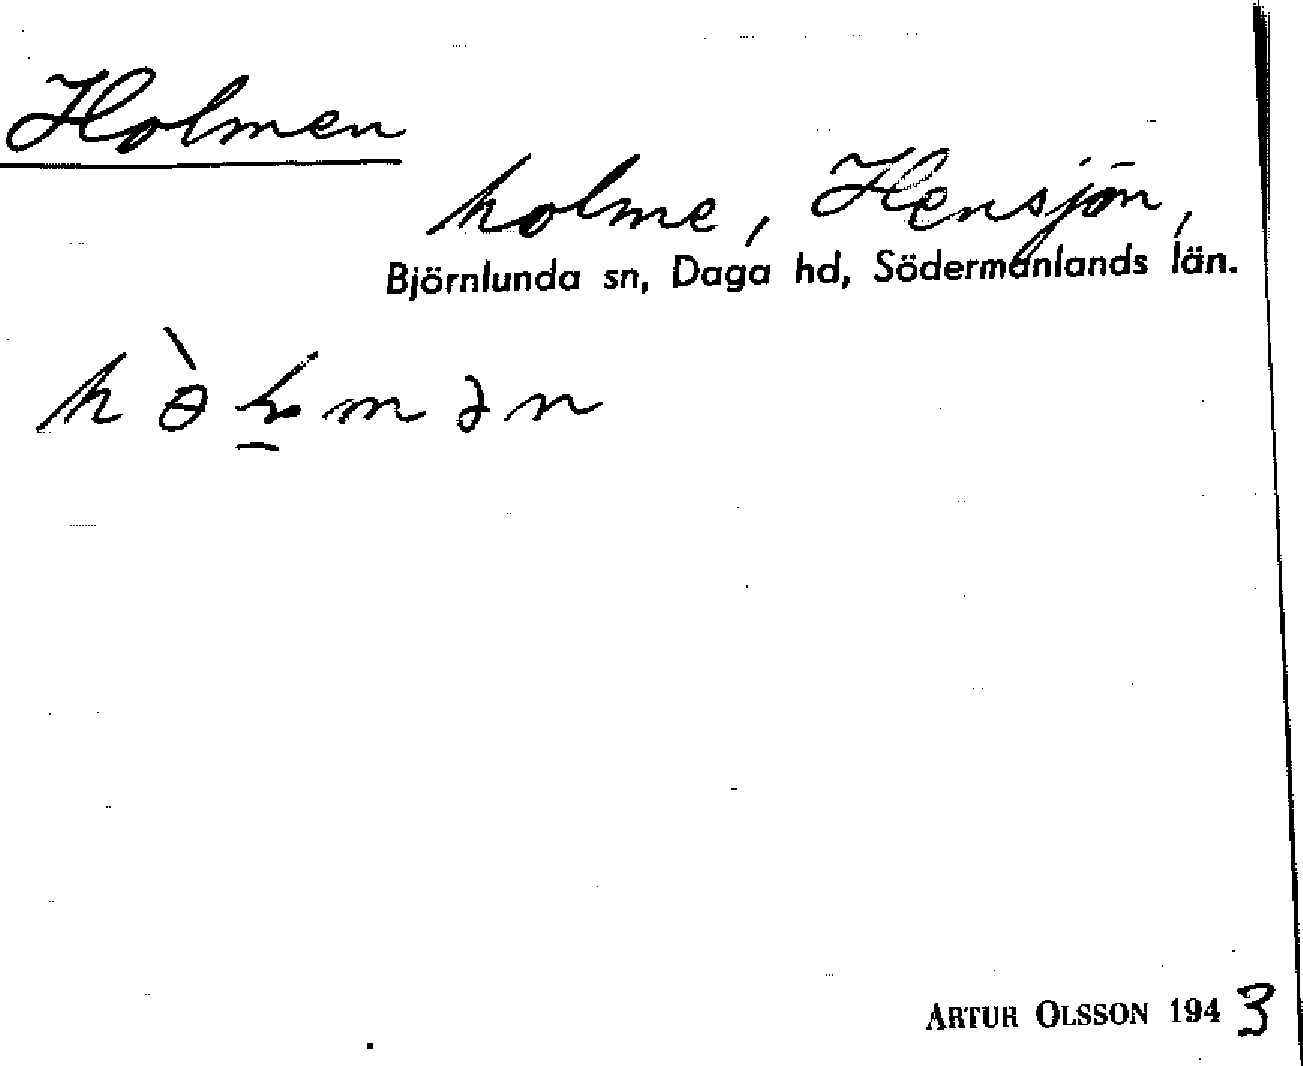 Holmen
holme, Hensjön,
Björnlunda sn, Daga hd, Södermanlands län.
ARTUR OLSSON 1943